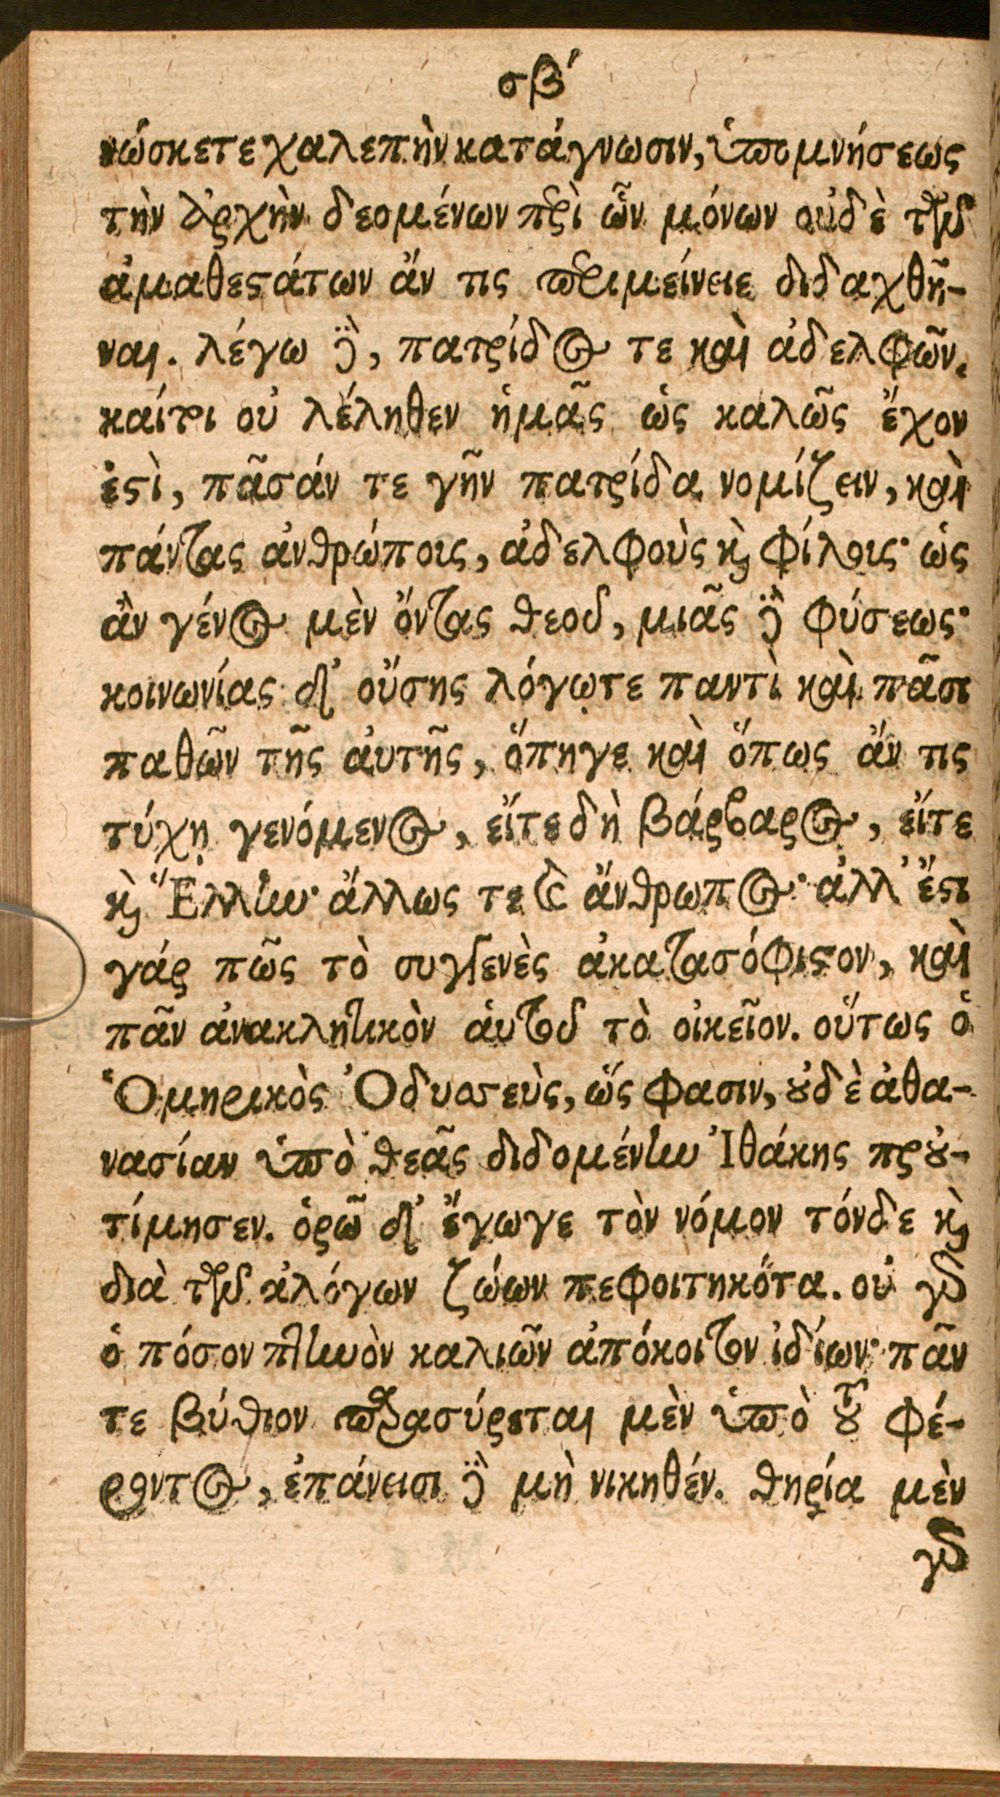 σβʹ
νώσκετε χαλεπὴν κατάγνωσιν, ὑπομνήσεως
τὴν ἀρχὴν δεομένων περὶ ὧν μόνων οὐδὲ τῶν
ἀμαθεστάτων ἄν τις περιμείνειε διδαχθῆ-
ναι. λέγω δὲ, πατρίδος τε καὶ ἀδελφῶν.
καίτοι οὐ λέληθεν ἡμᾶς ὡς καλῶς ἔχον
ἐστὶ, πᾶσάν τε γῆν πατρίδα νομίζειν, καὶ
πάντας ἀνθρώποις, ἀδελφοὺς καὶ φίλοις· ὡς
ἂν γένος μὲν ὄντας θεοῦ, μιᾶς δὲ φύσεως·
κοινωνίας δ' οὔσης λόγῳτε παντὶ καὶ πᾶσι
παθῶν τῆς ἀυτῆς, ὅπηγε καὶ ὅπως ἄν τις
τύχῃ γενόμενος, εἴτε δὴ βάρβαρος, εἴτε
καὶ Ἕλλην· ἄλλως τε καὶ ἄνθρωπος· ἀλλ' ἔστι
γάρ πῶς τὸ συγγενὲς ἀκατασόφιστον, καὶ
πᾶν ἀνακλητικὸν ἁυτοῦ τὸ οἰκεῖον. οὕτως ὁ
Ὁμηρικὸς Ὀδυσσεὺς, ὥς φασιν, οὐδὲ ἀθα-
νασίαν ὑπὸ θεᾶς διδομένην Ἰθάκης προὐ-
τίμησεν. ὁρῶ δ' ἔγωγε τὸν νόμον τόνδε καὶ
διὰ τῶν ἀλόγων ζώων πεφοιτηκότα. οὐ γὰρ
ὁ πόσον πτηνὸν καλιῶν ἀπόκοιτον ἰδίων· πᾶν
τε βύθιον παρασύρεται μὲν ὑπὸ τοῦ φέ-
ροντος, ἐπάνεισι δὲ μὴ νικηθέν. θηρία μὲν
γὰρ